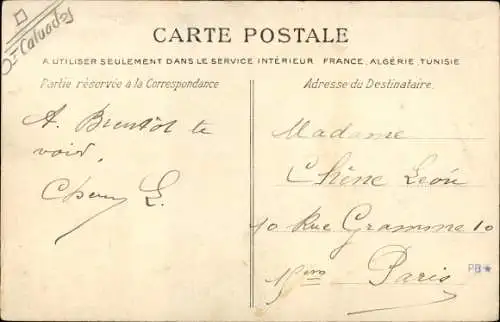 Calvados
CARTE POSTALE
A UTILISER SEULEMENT DANS LE SERVICE INTÉRIEUR FRANCE, ALGÉRIE, TUNISIE
Partie réservée à la Correspondance
Adresse du Destinataire.
A. Brentôt te
voir.
L.
Madame
Chêne Léon
10 Rue Gramme 10
15ème Paris
PB*